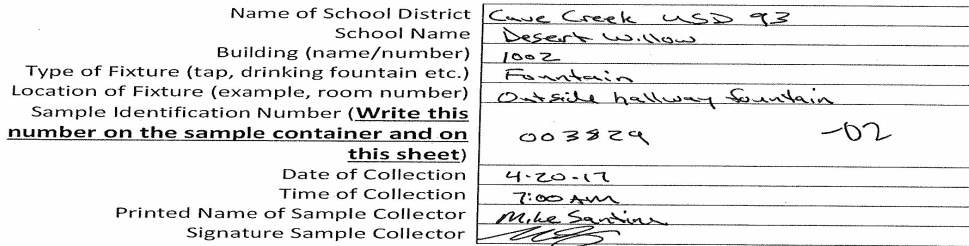 Name of School District Cave Creek USD 93
School Name Desert Willow
Building (name/number) 1002
Type of Fixture (tap, drinking fountain etc.) Fountain
Location of Fixture (example, room number) Outside hallway fountain
Sample Identification Number (Write this
number on the sample container and on 003829 -02
this sheet)
Date of Collection 4-20-17
Time of Collection 7:00 AM
Printed Name of Sample Collector Mike
Signature Sample Collector